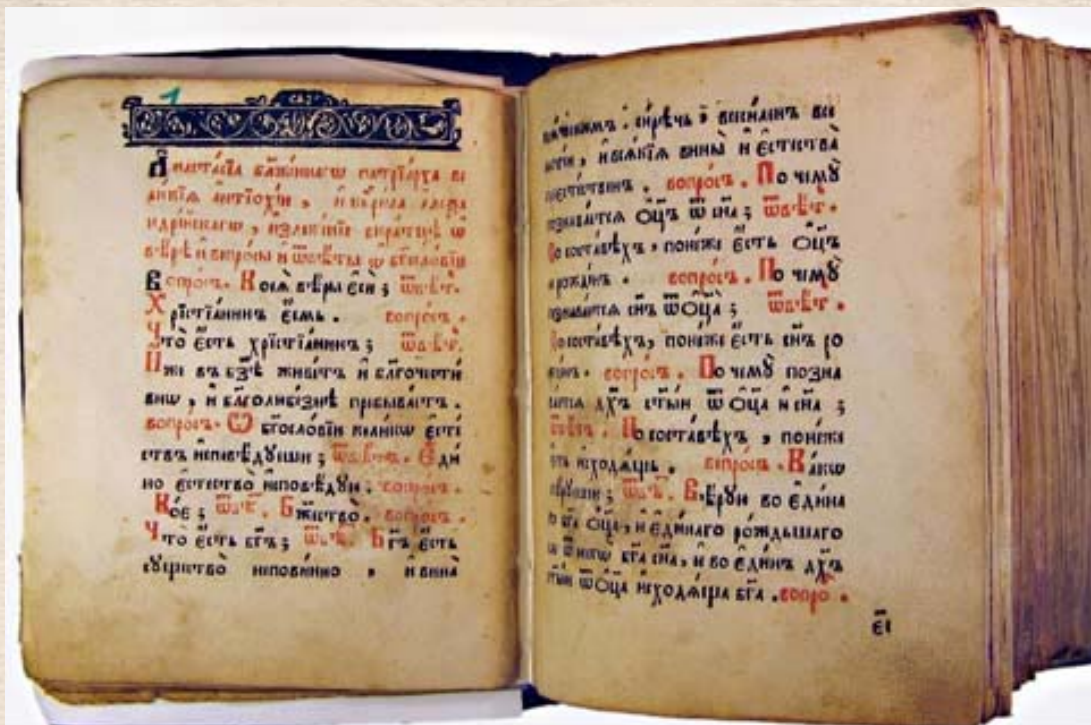 1
Анастасїа бл҃женнагѡ патрїарха ве
ликїѧ антїохїи , и кѷрила алеѯа
ндрїйскагѡ , изложенїе вкратцѣ ѡ
вѣрѣ и вопросы и ѿвѣты ѡ бг҃ословїи
Вопро́съ . Коеѧ̀ вѣры є҆сѝ ; ѿвѣ́т .
Хрїстїанинъ є҆смь . вопро́съ .
Что̀ є҆сть хрїстїанинъ ; ѿвѣ́т .
Иже въ бз҃ѣ живетъ и бл҃гочести
внѡ , и бл҃голюбезнѣ пребываетъ .
вопро́съ . Ѡ бг҃ословїи коликѡ є҆сте
ствъ исповѣдуеши ; ѿвѣ́т . Є҆ди
но є҆стество̀ исповѣдую . вопро́съ .
Кое ; ѿвѣ́т . Бж҃ество̀ . вопро́съ .
Что̀ є҆сть бг҃ъ ; ѿвѣ́т . Бг҃ъ є҆сть
существо неповинно , и вина̀
сирѣчь и всесиленъ все
и всѧкїѧ вины и є҆стества
вопро́съ . По чемꙋ̀
познаваетсѧ ѻ҆ц҃ъ ѿ сн҃а ; ѿвѣ́т .
По составѣхъ , понеже є҆сть ѻ҆ц҃ъ
нерожденъ . вопро́съ . По чемꙋ̀
познаваетсѧ сн҃ъ ѿ ѻ҆ц҃а ; ѿвѣ́т .
По составѣхъ , понеже є҆сть сн҃ъ ро
жденъ . вопро́съ . По чемꙋ позна
ваетсѧ дх҃ъ ст҃ый ѿ ѻ҆ц҃а и сн҃а ;
ѿвѣ́т . По составѣхъ , понеже
есть исходѧщь . вопро́съ . Какѡ
вѣруеши ; ѿвѣ́т . Вѣрую во є҆дина
го бг҃а ѻ҆ц҃а , и є҆динаго рождьшаго
сѧ ѿ негѡ бг҃а сн҃а , и во є҆динъ дх҃ъ
ст҃ый ѿ ѻ҆ц҃а исходѧща бг҃а . вопро́
є҃і